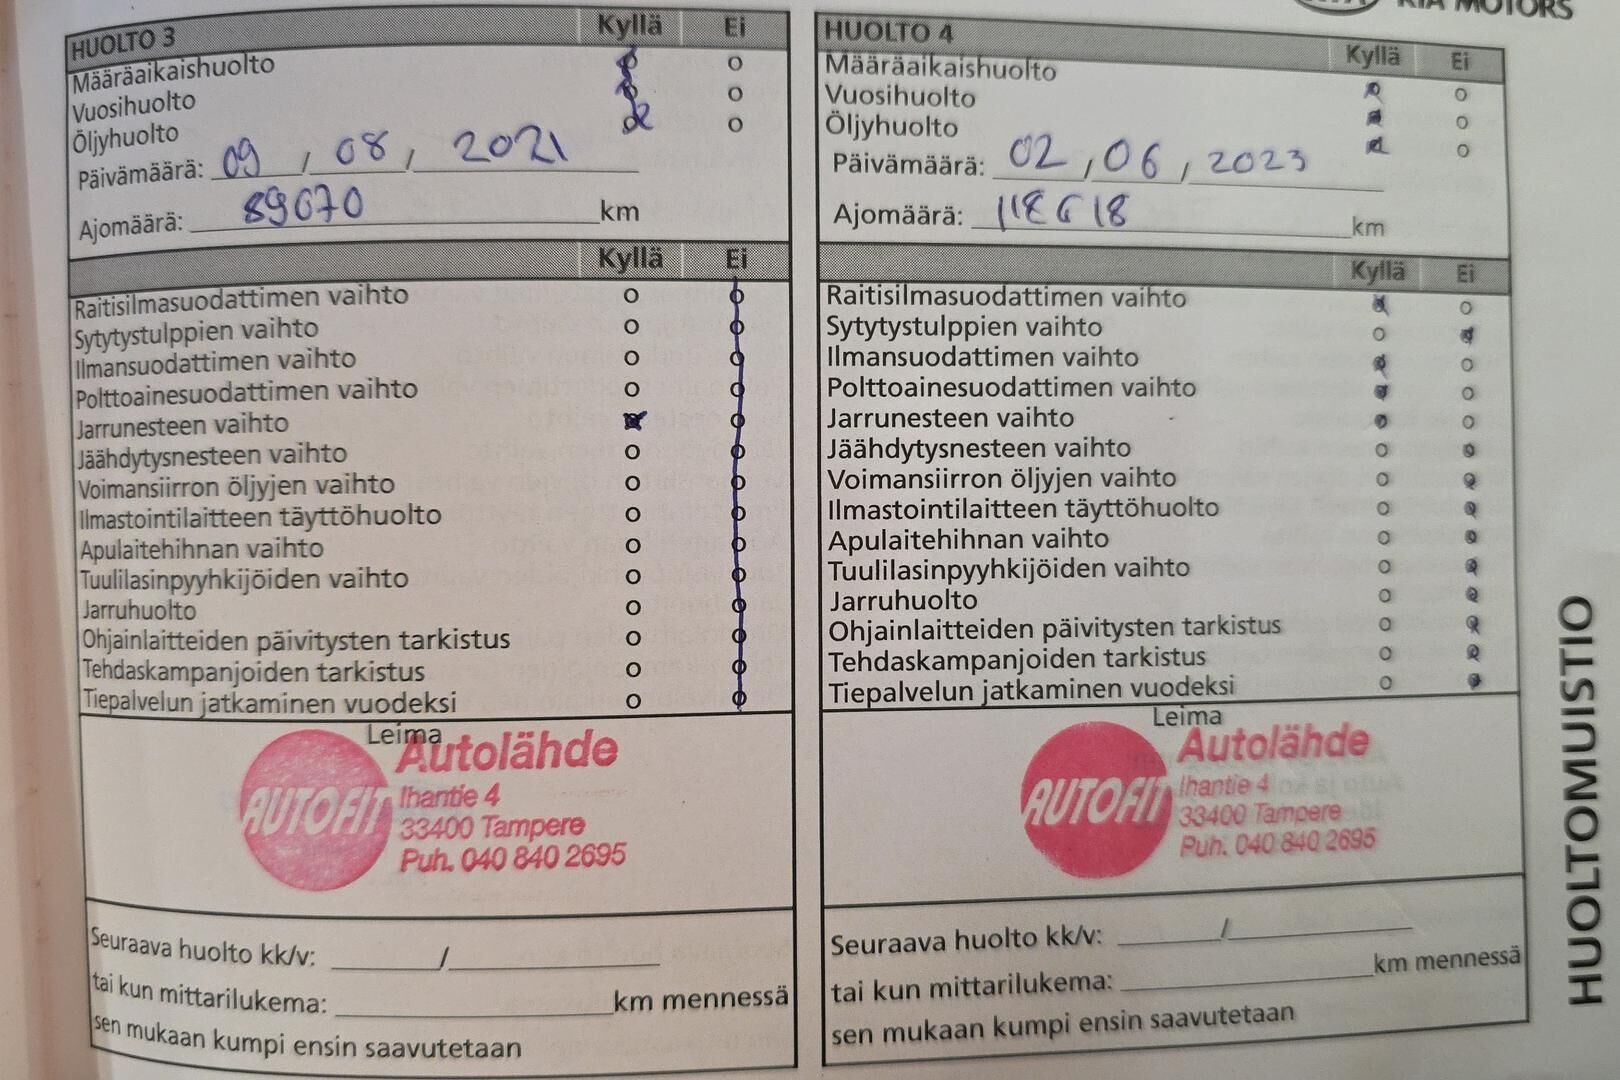 KIA MOTORS
HUOLTO 3 Kyllä Ei
Määräaikaishuolto
Vuosihuolto
Öljyhuolto
Päivämäärä: 09 / 08 / 2021
Ajomäärä: 89070 km
Kyllä Ei
Raitisilmasuodattimen vaihto
Sytytystulppien vaihto
Ilmansuodattimen vaihto
Polttoainesuodattimen vaihto
Jarrunesteen vaihto
Jäähdytysnesteen vaihto
Voimansiirron öljyjen vaihto
Ilmastointilaitteen täyttöhuolto
Apulaitehihnan vaihto
Tuulilasinpyyhkijöiden vaihto
Jarruhuolto
Ohjainlaitteiden päivitysten tarkistus
Tehdaskampanjoiden tarkistus
Tiepalvelun jatkaminen vuodeksi
Leima
AUTOFIT
Autolähde
Ihantie 4
33400 Tampere
Puh. 040 840 2695
Seuraava huolto kk/v: /
tai kun mittarilukema: km mennessä
sen mukaan kumpi ensin saavutetaan
HUOLTO 4 Kyllä Ei
Määräaikaishuolto
Vuosihuolto
Öljyhuolto
Päivämäärä: 02 / 06 / 2023
Ajomäärä: km
Kyllä Ei
Raitisilmasuodattimen vaihto
Sytytystulppien vaihto
Ilmansuodattimen vaihto
Polttoainesuodattimen vaihto
Jarrunesteen vaihto
Jäähdytysnesteen vaihto
Voimansiirron öljyjen vaihto
Ilmastointilaitteen täyttöhuolto
Apulaitehihnan vaihto
Tuulilasinpyyhkijöiden vaihto
Jarruhuolto
Ohjainlaitteiden päivitysten tarkistus
Tehdaskampanjoiden tarkistus
Tiepalvelun jatkaminen vuodeksi
Leima
AUTOFIT
Autolähde
Ihantie 4
33400 Tampere
Puh. 040 840 2695
Seuraava huolto kk/v: /
tai kun mittarilukema: km mennessä
sen mukaan kumpi ensin saavutetaan
HUOLTOMUISTIO